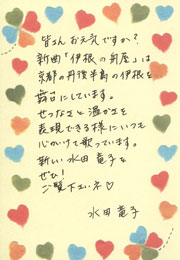 皆さん お元気ですか?
新曲「伊根の舟屋」は
京都の丹後半島の伊根を
舞台にしています。
せつなさと温かさを
表現できる様にいつも
心がけて歌っています。
新しい水田竜子を
ぜひ!
ご覧下さいネ♡
水田竜子